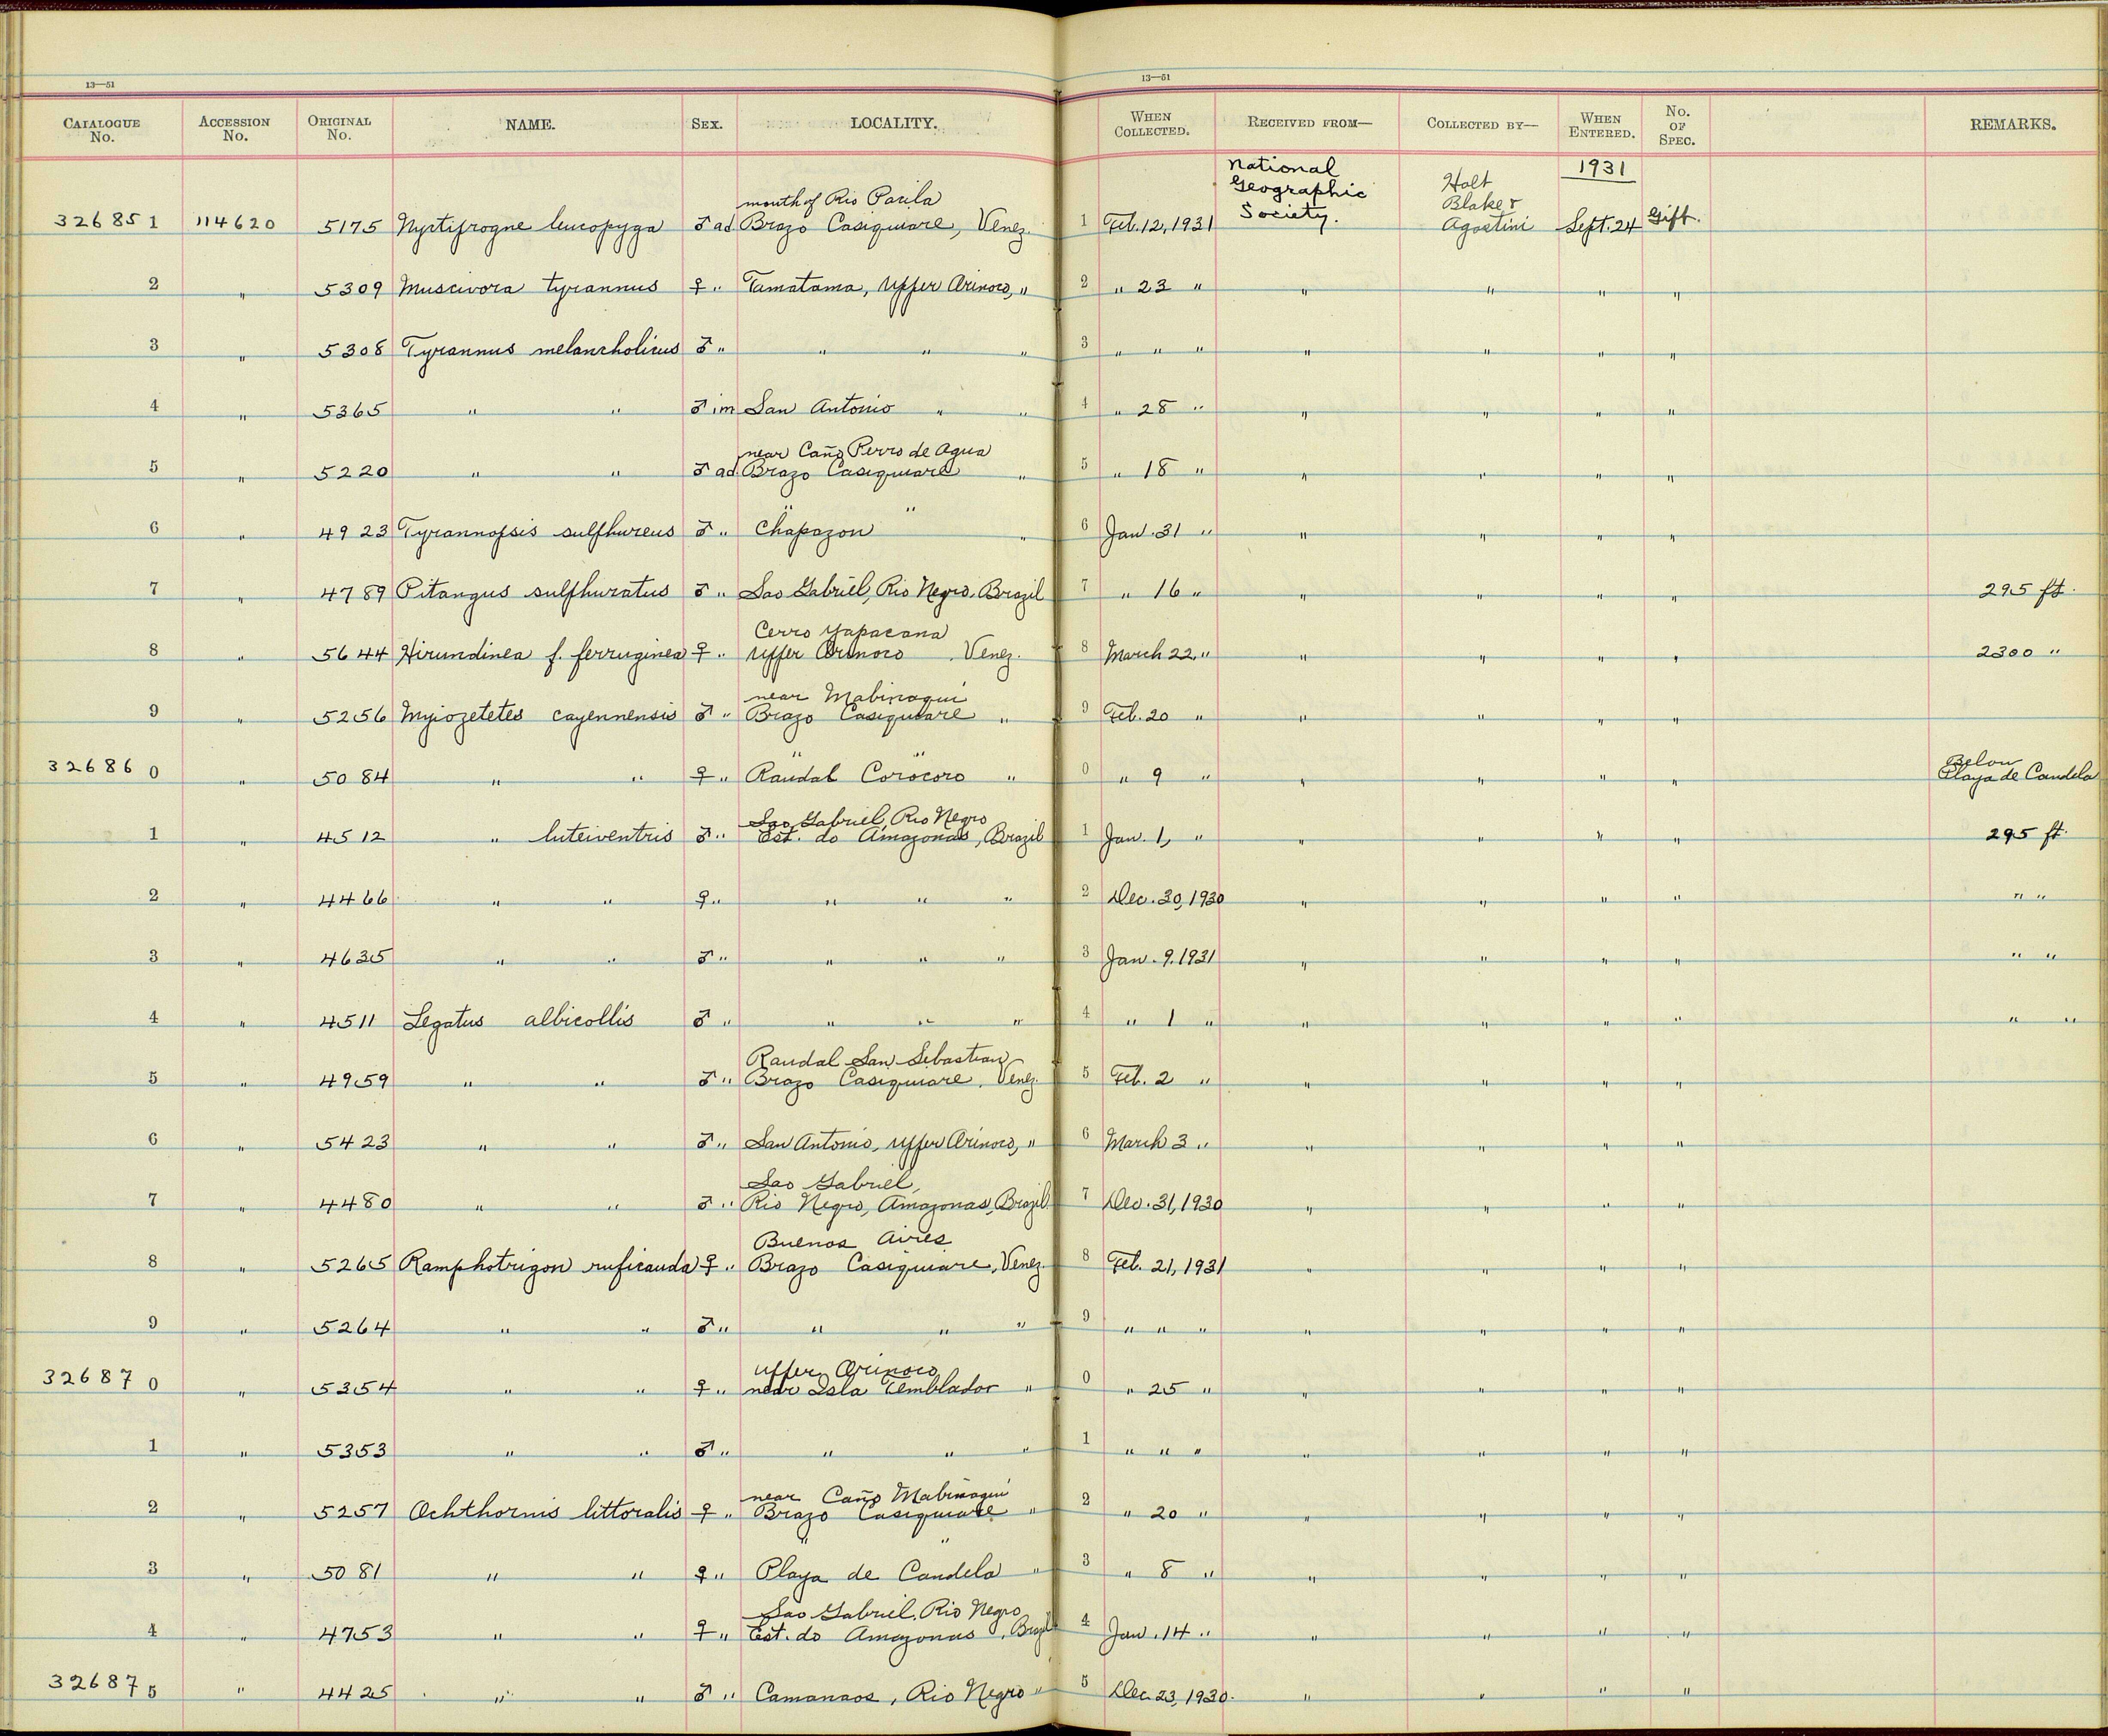 13—51 13—51
CATALOGUE No. ACCESSION No. ORIGINAL No. NAME. SEX. LOCALITY. WHEN COLLECTED. RECEIVED FROM— COLLECTED BY— WHEN ENTERED. No. OF SPEC. REMARKS.
National Geographic Society. Holt Blake & Agostini 1931
mouth of Rio Pasila
326851 114620 5175 Nyctiprogne leucopyga ♂ ad Brazo Casiquiare, Venez. 1 Feb. 12, 1931 Sept. 24 Gift.
2 " 5309 Muscivora tyrannus ♀ " Tamatama, Upper Orinoco, " 2 " 23 " " " " "
3 " 5308 Tyrannus melancholicus ♂ " " " " 3 " " " " " " "
4 " 5365 " " ♂ im San Antonio " " 4 " 28 " " " " "
near Caño Perro de Agua
5 " 5220 " " ♂ ad. Brazo Casiquiare " 5 " 18 " " " " "
" "
6 " 4923 Tyrannopsis sulphureus ♂ " Chapazon " 6 Jan. 31 " " " " "
7 " 4789 Pitangus sulphuratus ♂ " Sao Gabriel, Rio Negro, Brazil 7 " 16 " " " " " 295 ft.
Cerro Yapacana
8 " 5644 Hirundinea f. ferruginea ♀ " Upper Orinoco, Venez. 8 March 22, " " " " " 2300 "
near Mabinaqui
9 " 5256 Myiozetetes cayennensis ♂ " Brazo Casiquiare " 9 Feb. 20 " " " " "
" " Below
326860 " 5084 " " ♀ " Raudal Corocoro " 0 " 9 " " " " " Playa de Candela
Sao Gabriel, Rio Negro
1 " 4512 " luteiventris ♂ " Est. do Amazonas, Brazil 1 Jan. 1, " " " " " 295 ft.
2 " 4466 " " ♀ " " " " 2 Dec. 30, 1930 " " " " " "
3 " 4635 " " ♂ " " " " 3 Jan. 9. 1931 " " " " " "
4 " 4511 Legatus albicollis ♂ " " " " 4 " 1 " " " " " " "
Raudal San Sebastian
5 " 4959 " " ♂ " Brazo Casiquiare, Venez. 5 Feb. 2 " " " " "
6 " 5423 " " ♂ " San Antonio, Upper Orinoco, " 6 March 3 " " " " "
Sao Gabriel,
7 " 4480 " " ♂ " Rio Negro, Amazonas, Brazil 7 Dec. 31, 1930 " " " "
Buenos Aires
8 " 5265 Ramphotrigon ruficauda ♀ " Brazo Casiquiare, Venez. 8 Feb. 21, 1931 " " " "
9 " 5264 " " ♂ " " " " 9 " " " " " " "
Upper Orinoco
326870 " 5354 " " ♀ " near Isla Temblador " 0 " 25 " " " " "
1 " 5353 " " ♂ " " " " 1 " " " " " " "
near Caño Mabinaqui
2 " 5257 Ochthornis littoralis ♀ " Brazo Casiquiare " 2 " 20 " " " " "
" "
3 " 5081 " " ♀ " Playa de Candela " 3 " 8 " " " " "
Sao Gabriel, Rio Negro
4 " 4753 " " ♀ " Est. do Amazonas, Brazil 4 Jan. 14 " " " " "
326875 " 4425 " " ♂ " Camanaos, Rio Negro " 5 Dec. 23, 1930. " " " "